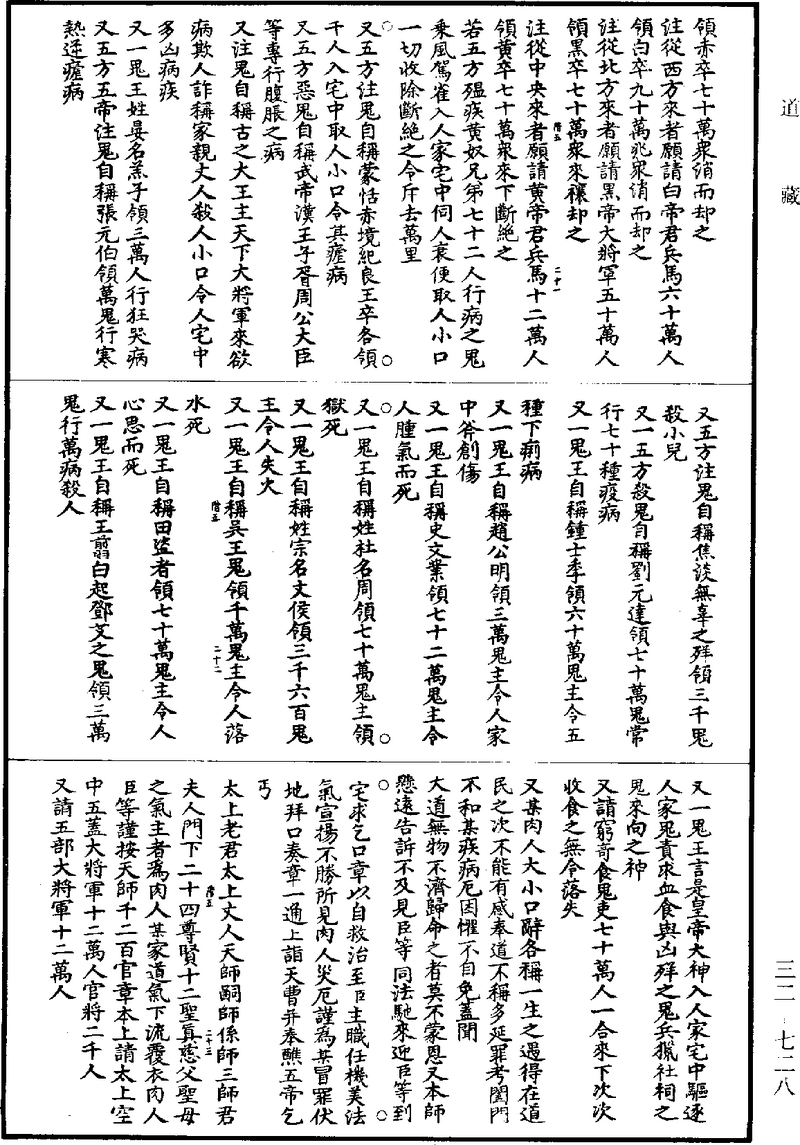 道藏
領赤卒七十萬衆消而却之
注從西方來者願請白帝君兵馬六十萬人
領白卒九十萬兆衆消而却之
注從北方來者願請黑帝大將軍五十萬人
領黑卒七十萬衆來禳却之
注從中央來者願請黄帝君兵馬十二萬人
領黄卒七十萬衆來下斷絶之
若五方殟疾黄奴兄弟七十二人行病之鬼
乗風駕雀入人家宅中伺人衰便取人小口
一切收除斷絶之令斥去萬里
又五方注鬼自稱蒙恬赤境紀良王卒各領
千人入宅中取人小口令其瘧病
又五方惡鬼自稱武帝漢王子胥周公大臣
等專行腹脹之病
又注鬼自稱古之大王主天下大將軍來欲
病欺人詐稱家親丈人殺人小口令人宅中
多凶病疾
又一鬼王姓晏名羔子領三萬人行狂哭病
又五方五帝注鬼自稱張元伯領萬鬼行寒
熱逆瘧病
又五方注鬼自稱焦淡無辜之殍領三千鬼
殺小兒
又一五方殺鬼自稱劉元達領七十萬鬼常
行七十種疫病
又一鬼王自稱鍾士季領六十萬鬼主令五
種下痢病
又一鬼王自稱趙公明領三萬鬼主令人家
中斧創傷
又一鬼王自稱史文業領七十二萬鬼主令
人腫氣而死
又一鬼王自稱姓杜名周領七十萬鬼主領
獄死
又一鬼王自稱姓宗名文侯領三千六百鬼
王令人失火
又一鬼王自稱吳王鬼領千萬鬼主令人落
水死
又一鬼王自稱田盗者領七十萬鬼主令人
心思而死
又一鬼王自稱王翦白起鄧艾之鬼領三萬
鬼行萬病殺人
又一鬼王言是皇帝大神入人家宅中驅逐
人家鬼責求血食與凶殍之鬼兵獵社祠之
鬼來向之神
又請窮奇食鬼吏七十萬人一合來下次次
收食之無令落失
又某肉人大小口辭各稱一生之過得在道
民之次不能有感奉道不稱多延罪考閨門
不和某疾病厄困懼不自免蓋聞
大道無物不濟歸命之者莫不蒙恩又本師
懸遠告訴不及見臣等同法馳來迎臣等到
宅求乞口章以自救治至臣主職任機美法
氣宣揚不勝所見肉人災厄謹為某冒罪伏
地拜口奏章一通上詣天曹并奉醮五帝乞
丐
太上老君太上丈人天師嗣師係師三師君
夫人門下二十四尊賢十二聖真慈父聖母
之氣主者為肉人某家道氣下流覆衣肉人
臣等謹按天師千二百官章本上請太上空
中五蓋大將軍十二萬人官將二千人
又請五部大將軍十二萬人
三二-七二八